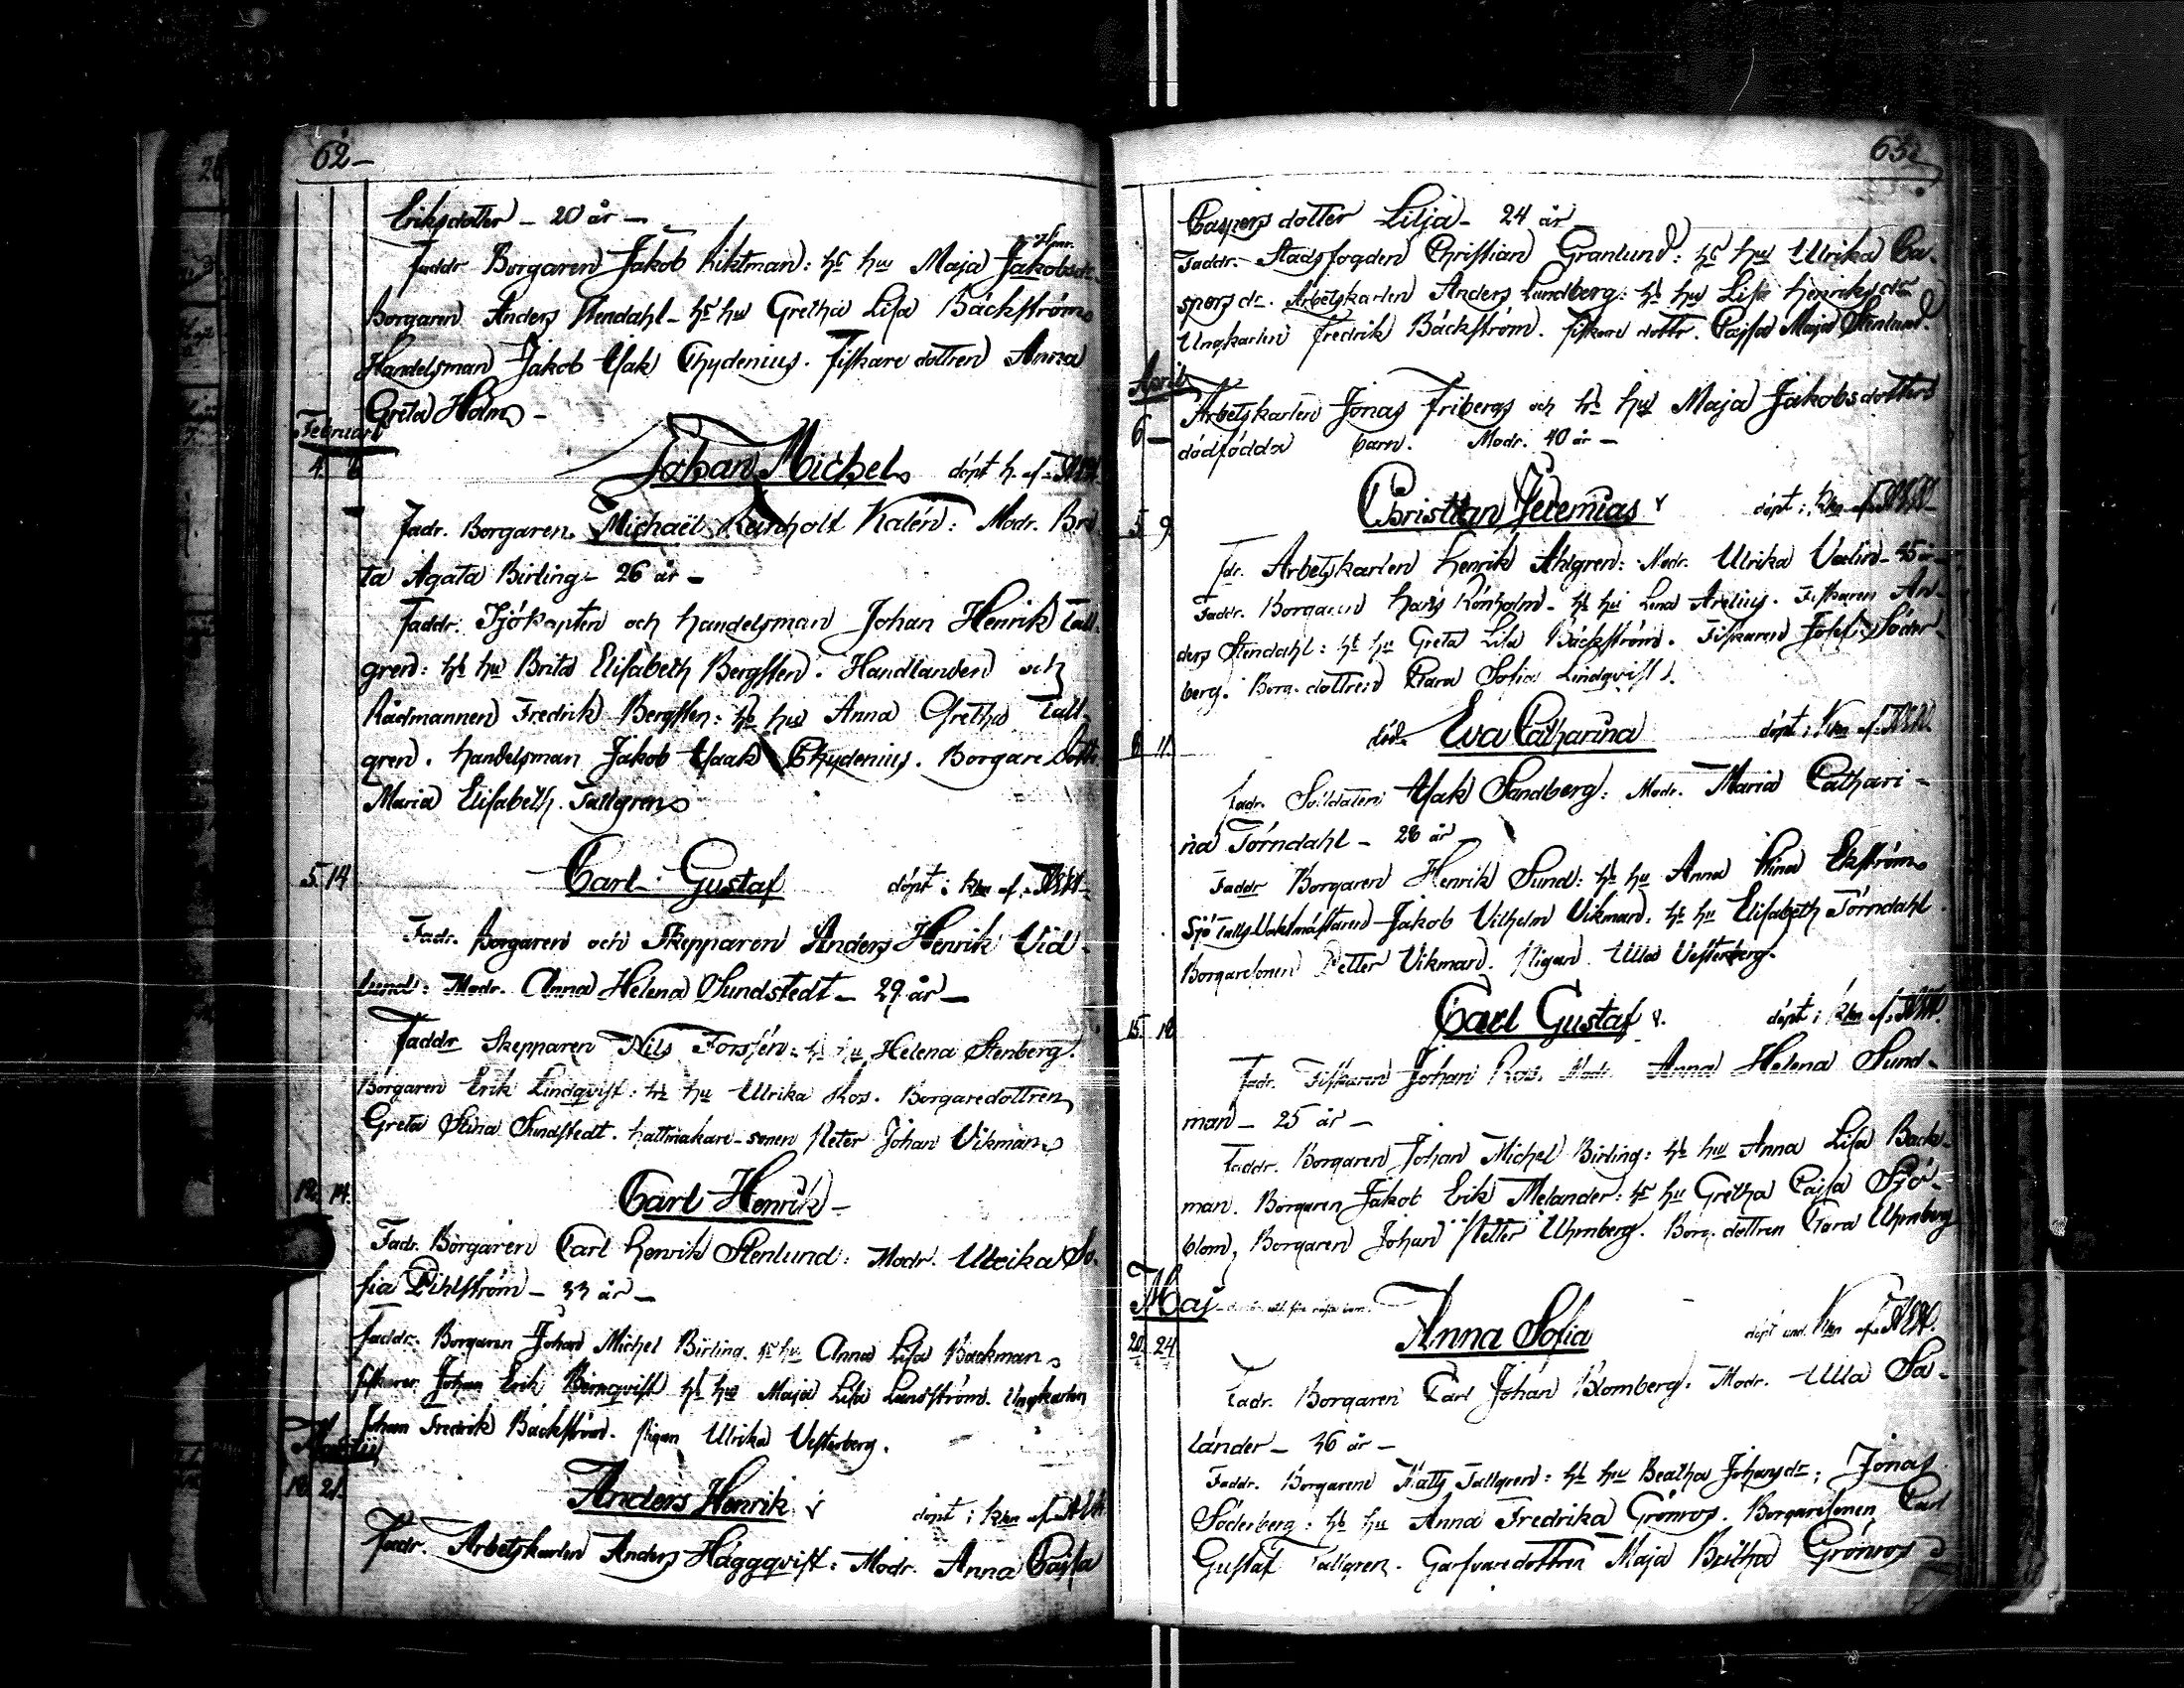 62
Eriksdotter – 20 år –
Faddr Borgaren Jakob Riktman: hs hu Maja Jakobsdr
Borgaren Anders Stendahl – hs hu Gretha Lisa Bäckström
Handelsman Jakob Isak Chydenius. Fiskare dottren Anna
Greta Holm –
Februari
4. 6 Johan Michel döpt h. af
Fadr. Borgaren Michaël Reinholt Kalén: Modr. Bri
ta Agata Birling – 26 år –
Faddr. Sjökapten och handelsman Johan Henrik Tall
gren: hs hu Brita Elisabeth Bergsten. Handlanden och
Rådmannen Fredrik Bergsten: hs hu Anna Gretha Tall
gren. handelsman Jakob Isaak Chydenius. Borgare dottr
Maria Elisabeth Tallgren
5. 14 Carl Gustaf döpt i kkn af
Fadr. Borgaren och Skepparen Anders Henrik Vid
lund: Modr. Anna Helena Sundstedt – 29 år –
Faddr Skepparen Nils Forssén: hs hu Helena Stenberg.
Borgaren Erik Lindqvist: hs hu Ulrika Ros. Borgaredottren
Greta Stina Sundstedt. hattmakare-sonen Peter Johan Vikman
12. 14. Carl Henrik –
Fadr. Borgaren Carl Henrik Stenlund: Modr. Ulrika So
fia Pihlström – 33 år –
Faddr. Borgaren Johan Michel Birling. hs hu Anna Lisa Backman
fiskaren Johan Erik Björnqvist hs hu Maja Lisa Lundström. Ungkarlen
Johan Fredrik Bäckström. Pigan Ulrika Vesterberg.
Martii
18 21. Anders Henrik döpt i kkn af
Fadr. Arbetskarlen Anders Häggqvist: Modr. Anna Caisa
63
Caspersdotter Lilja – 24 år
Faddr. Stadsfogden Christian Granlund: hs hu Ulrika Ca
spersdr. Arbetskarlen Anders Lundberg: hs hu Lisa Henriksdr
Ungkarlen Fredrik Bäckström. fiskare dottr. Caisa Maja Stenlund.
April
6 – Arbetskarlen Jonas Fribergs och hs hu Maja Jakobsdotters
dödfödda barn. Modr. 40 år –
5 9. Christian Jeremias döpt i kkn af
Fdr. Arbetskarlen Henrik Ahlgren: Modr. Ulrika Valin – 45 år –
Faddr. Borgaren Hans Rönholm – hs hu Lena Arelius. Fiskaren An
ders Stendahl: hs hu Greta Lisa Bäckström. Fiskaren Josef Söder
berg. Borg. dottren Clara Sofia Lindqvist
8 11. död Eva Catharina döpt i kkn af
Fadr. Soldaten Isak Sandberg: Modr. Maria Cathari –
na Törndahl – 28 år –
Faddr Borgaren Henrik Sund: hs hu Anna Stina Ekström
Sjö Tulls Vaktmästaren Jakob Vilhelm Vikman: hs hu Elisabeth Törndahl
Borgaresonen Petter Vikman. Pigan Ulla Vesterberg.
15. 18 Carl Gustaf döpt i kkn af
Fadr. Fiskaren Johan Ros. Modr. Anna Helena Sund –
man – 25 år –
Faddr. Borgaren Johan Michel Birling: hs hu Anna Lisa Back
man. Borgaren Jakob Erik Melander: hs hu Gretha Caisa Sjö –
blom, Borgaren Johan Petter Uhrnberg. Borg. dottren Clara Uhrnberg
Maj
20. 24. Anna Sofia döpt kkn af
Fadr. Borgaren Carl Johan Blomberg. Modr. Ulla Sa –
lander – 36 år –
Faddr. Borgaren Matts Tallgren: hs hu Beatha Johansdr; Jonas
Söderberg: hs hu Anna Fredrika Grönros. Borgaresonen Carl
Gustaf Tallgren. Garfvaredottren Maja Britha Grönros